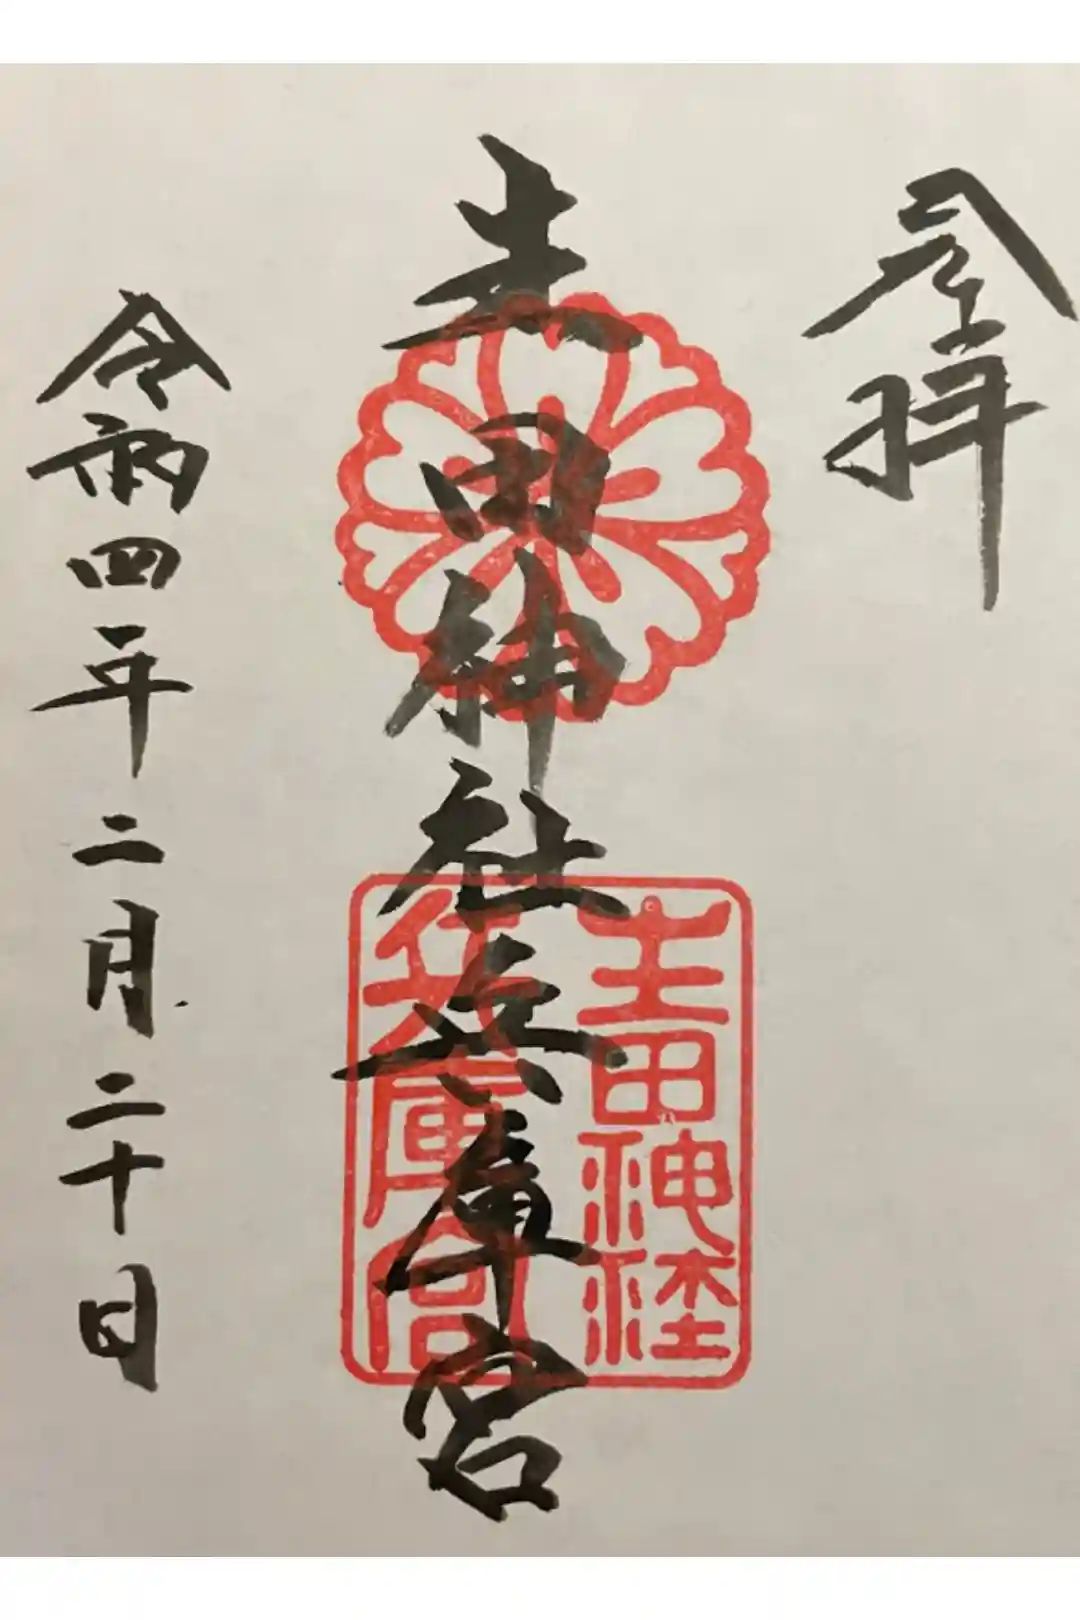 参拝
生田神社兵庫宮
生田神社
兵庫宮
令和四年二月二十日